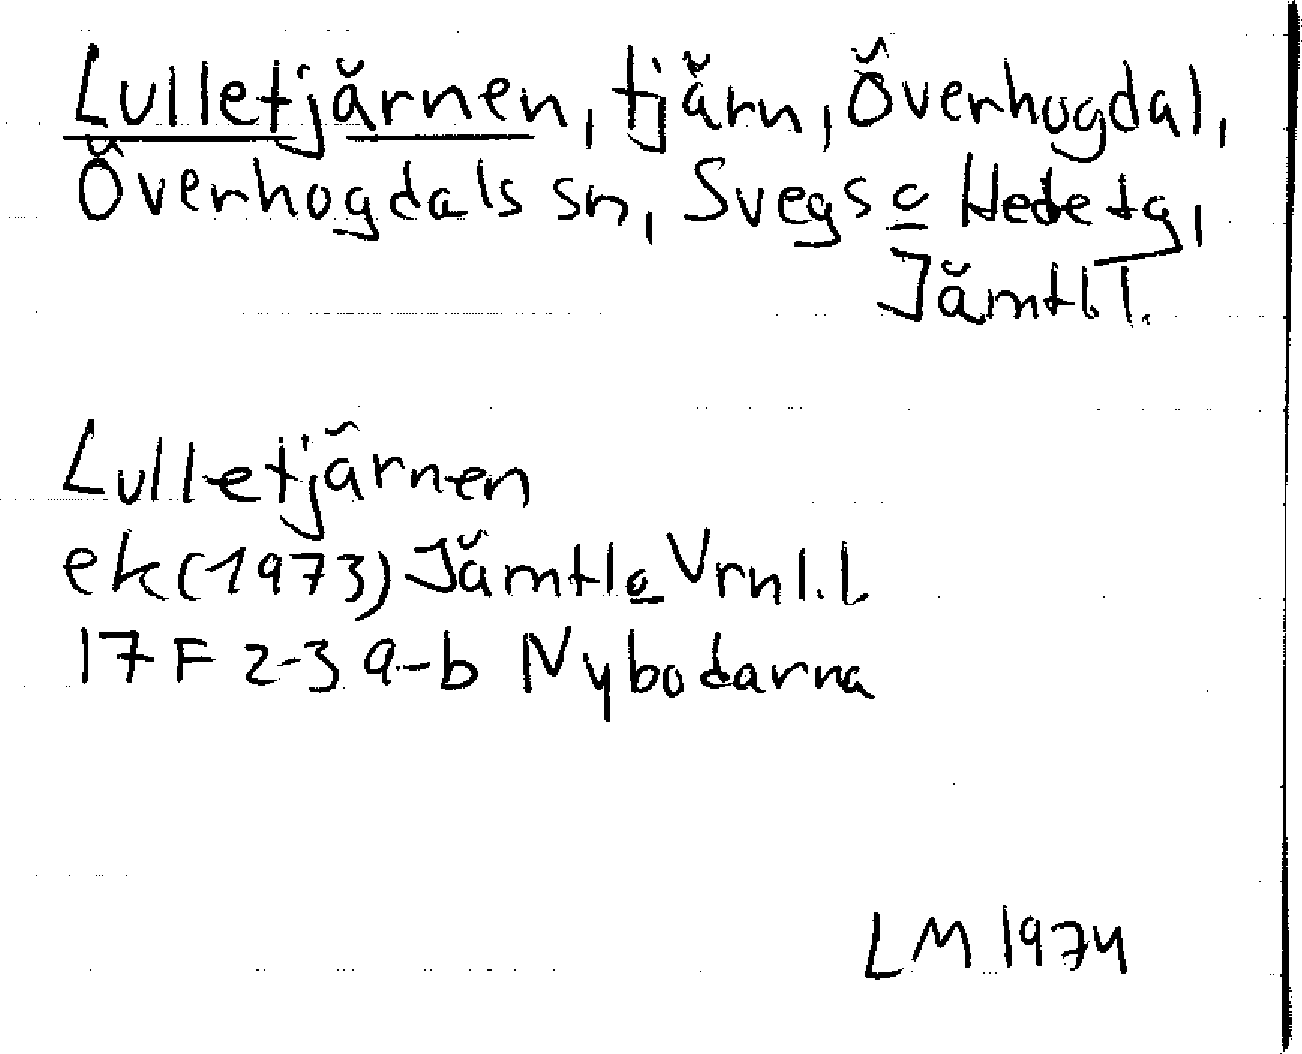 Lulletjärnen, tjärn, Överhogdal,
Överhogdals sn, Svegs o Hede tg,
Jämtl. l.
Lulletjärnen
ek (1973) Jämtl o Vrnl. l.
17 F 2-3 a-b Nybodarna
LM 1974